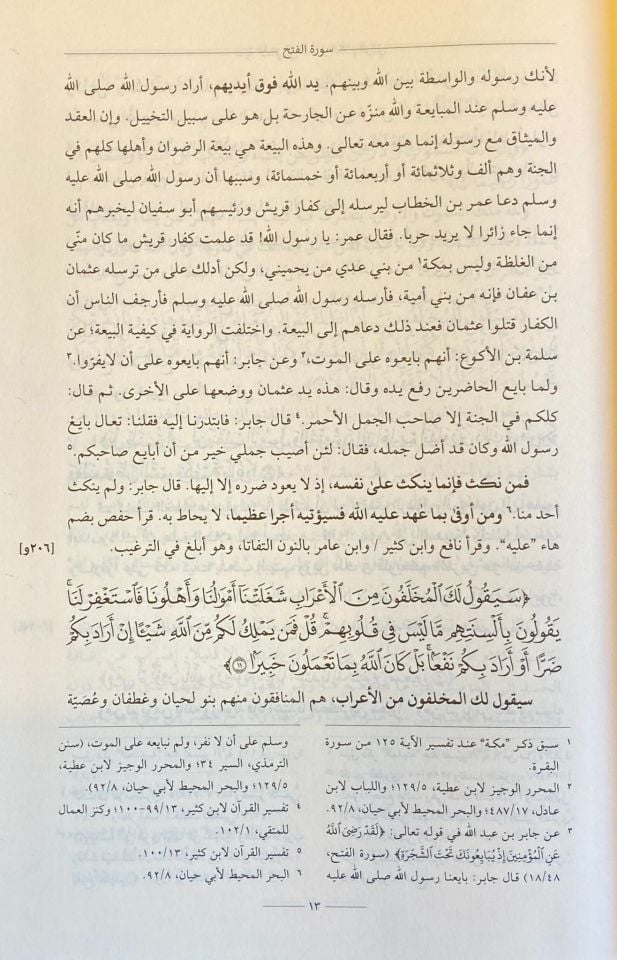 سورة الفتح
لأنك رسوله والواسطة بين الله وبينهم. يد الله فوق أيديهم، أراد رسول الله صلى الله
عليه وسلم عند المبايعة والله منزّه عن الجارحة بل هو على سبيل التخييل. وإن العقد
والميثاق مع رسوله إنما هو معه تعالى. وهذه البيعة هي بيعة الرضوان وأهلها كلهم في
الجنة وهم ألف وثلاثمائة أو أربعمائة أو خمسمائة، وسببها أن رسول الله صلى الله عليه
وسلم دعا عمر بن الخطاب ليرسله إلى كفار قريش ورئيسهم أبو سفيان ليخبرهم أنه
إنما جاء زائرا لا يريد حربا. فقال عمر: يا رسول الله! قد علمت كفار قريش ما كان منّي
من الغلظة وليس بمكة١ من بني عدي من يحميني، ولكن أدلك على من ترسله عثمان
بن عفان فإنه من بني أمية، فأرسله رسول الله صلى الله عليه وسلم فأرجف الناس أن
الكفار قتلوا عثمان فعند ذلك دعاهم إلى البيعة. واختلفت الرواية في كيفية البيعة؛ عن
سلمة بن الأكوع: أنهم بايعوه على الموت،٢ وعن جابر: أنهم بايعوه على أن لايفرّوا.٣
ولما بايع الحاضرين رفع يده وقال: هذه يد عثمان ووضعها على الأخرى. ثم قال:
كلكم في الجنة إلا صاحب الجمل الأحمر.٤ قال جابر: فابتدرنا إليه فقلنا: تعال بايعْ
رسول الله وكان قد أضل جمله، فقال: لئن أصيب جملي خير من أن أبايع صاحبكم.٥
فمن نكث فإنما ينكث على نفسه، إذ لا يعود ضرره إلا إليها. قال جابر: ولم ينكث
أحد منا.٦ ومن أوفى بما عٰهد عليه الله فسيؤتيه أجرا عظيما، لا يحاط به. قرأ حفص بضم
هاء ”عليه“. وقرأ نافع وابن كثير / وابن عامر بالنون التفاتا، وهو أبلغ في الترغيب.
[٢٠٦و]
﴿سَيَقُولُ لَكَ الْمُخَلَّفُونَ مِنَ الْأَعْرَابِ شَغَلَتْنَا أَمْوَالُنَا وَأَهْلُونَا فَاسْتَغْفِرْ لَنَاۚ
يَقُولُونَ بِأَلْسِنَتِهِم مَّا لَيْسَ فِي قُلُوبِهِمْۚ قُلْ فَمَن يَمْلِكُ لَكُم مِّنَ اللَّهِ شَيْئًا إِنْ أَرَادَ بِكُمْ
ضَرًّا أَوْ أَرَادَ بِكُمْ نَفْعًاۚ بَلْ كَانَ اللَّهُ بِمَا تَعْمَلُونَ خَبِيرًا ۝١١﴾
سيقول لك المخلفون من الأعراب، هم المنافقون منهم بنو لحيان وغطفان وعُصَيّة
١ سبق ذكر ”مكة“ عند تفسير الآية ١٢٥ من سورة
البقرة.
٢ المحرر الوجيز لابن عطية، ١٢٩/٥؛ واللباب لابن
عادل، ٤٨٧/١٧؛ والبحر المحيط لأبي حيان، ٩٢/٨.
٣ عن جابر بن عبد الله في قوله تعالى: ﴿لَقَدْ رَضِيَ اللَّهُ
عَنِ الْمُؤْمِنِينَ إِذْ يُبَايِعُونَكَ تَحْتَ الشَّجَرَةِ﴾ (سورة الفتح،
١٨/٤٨) قال جابر: بايعنا رسول الله صلى الله عليه
وسلم على أن لا نفر، ولم نبايعه على الموت، (سنن
الترمذي، السير ٣٤؛ والمحرر الوجيز لابن عطية،
١٢٩/٥؛ والبحر المحيط لأبي حيان، ٩٢/٨).
٤ تفسير القرآن لابن كثير، ٩٩/١٣-١٠٠؛ وكنز العمال
للمتقي، ١٠٢/١.
٥ تفسير القرآن لابن كثير، ١٠٠/١٣.
٦ البحر المحيط لأبي حيان، ٩٢/٨.
١٣